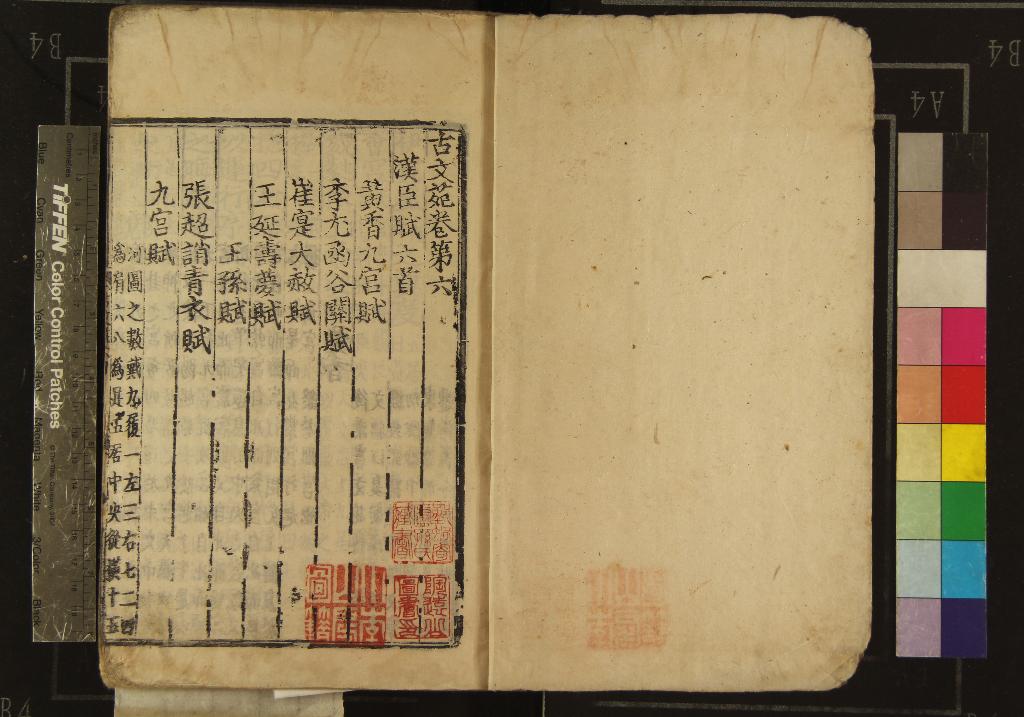 古文苑卷第六
漢臣賦六首
黃香九宮賦
李尤函谷關賦
崔寔大赦賦
王延壽夢賦
王孫賦
張超誚青衣賦
九宮賦
河圖之數戴九履一左三右七二四
為肩六八為足五居中央從橫十五
B4
A4
B4
TIFFEN Color Control Patches
Blue
Cyan
Green
Yellow
Red
Magenta
White
3/Color
Black
Centimetres